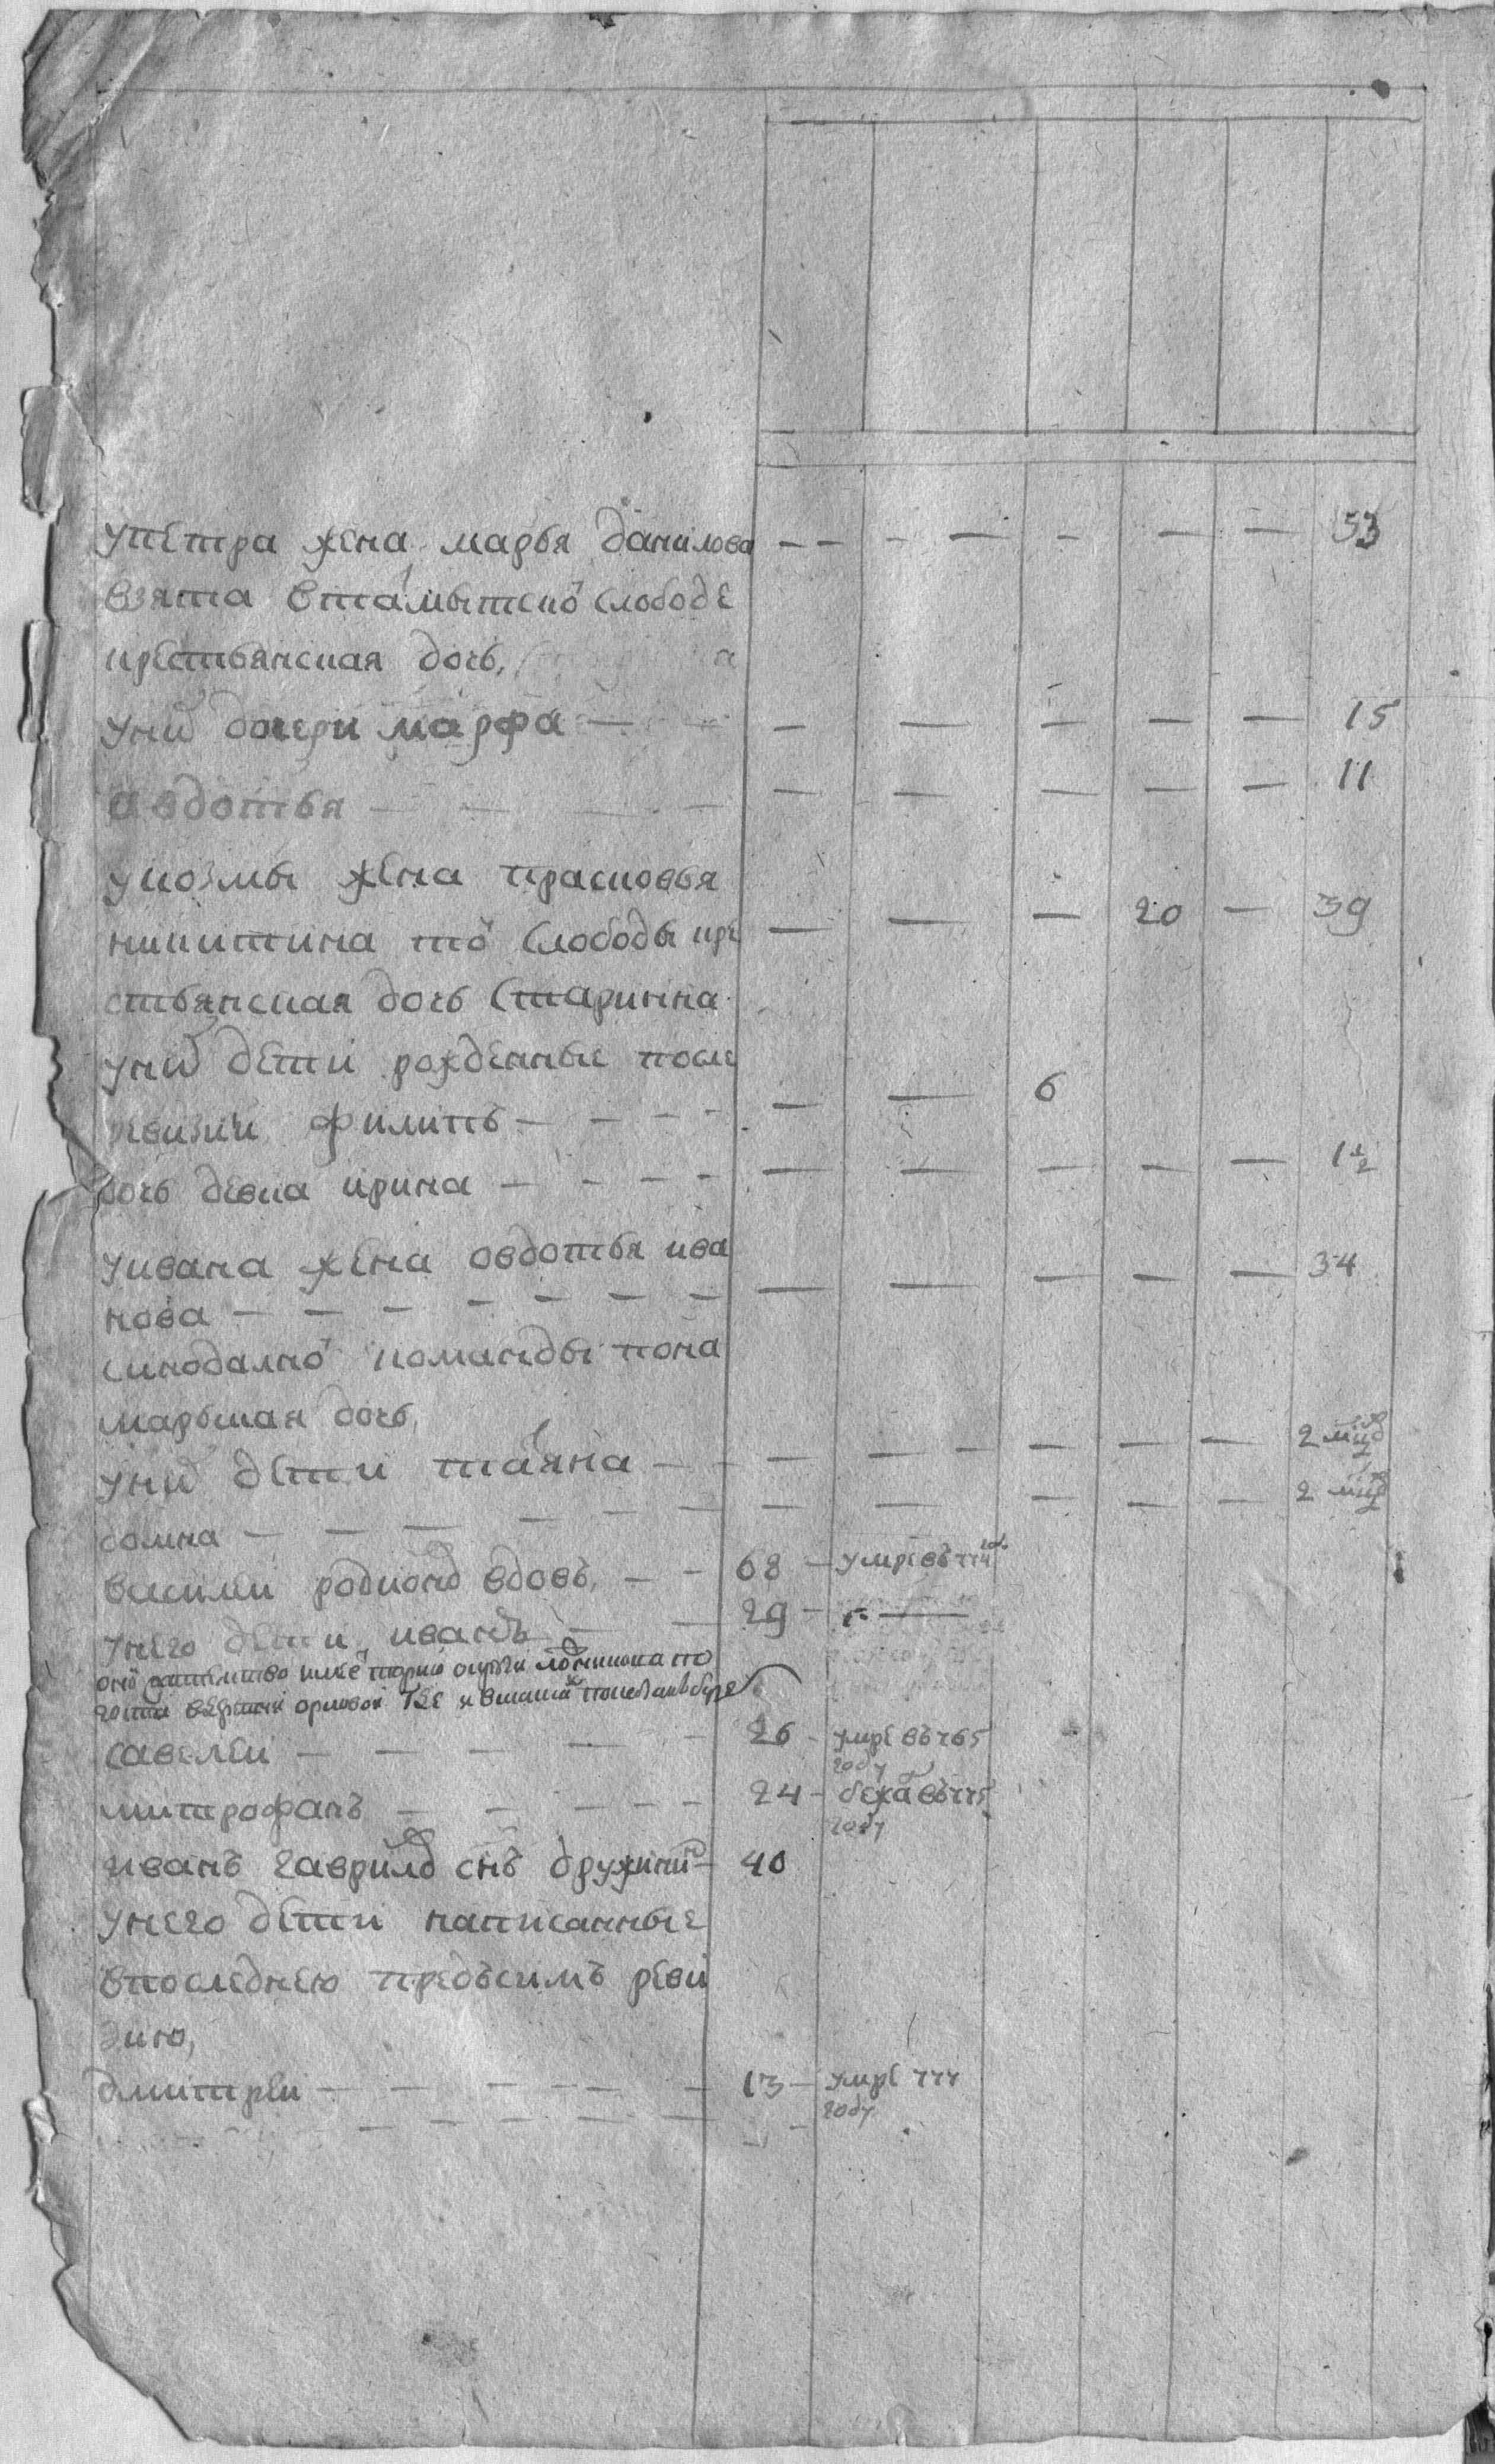 упетра жена марья данилова — — — — — — — 53
взята втамытскоӥ слободе
крестьянская дочь,
уних дочери марфа — — — — — — 15
авдотья — — — — — — — — 11
укозмы жена прасковья
никитина тоӥ слободы кре — — — 20 — 39
стьянская дочь старинна
уних дети рожденные после
ревизии филипъ — — — — — — 6
дочь девка ирина — — — — — — — — — 1½
уивана жена овдотья ива
нова — — — — — — — — — — — — 34
синодалноӥ команды поно
марьская дочь,
уних дети татяна — — — — — — — — 2
солка — — — — — — — — — — — 2
василеи родионов вдовъ, — — 68 — умре въ 774
унего дети, иванъ — — 29 —
савелеи — — — — — 26 — умре въ 765
году
митрофанъ — — — — — 24 — бежа въ 775
году
иванъ гаврилов снъ дружинин — 40
унего дети написанные
впоследнею предъсимъ реви
зию,
дмитреи — — — — — — 13 — умре 777
году